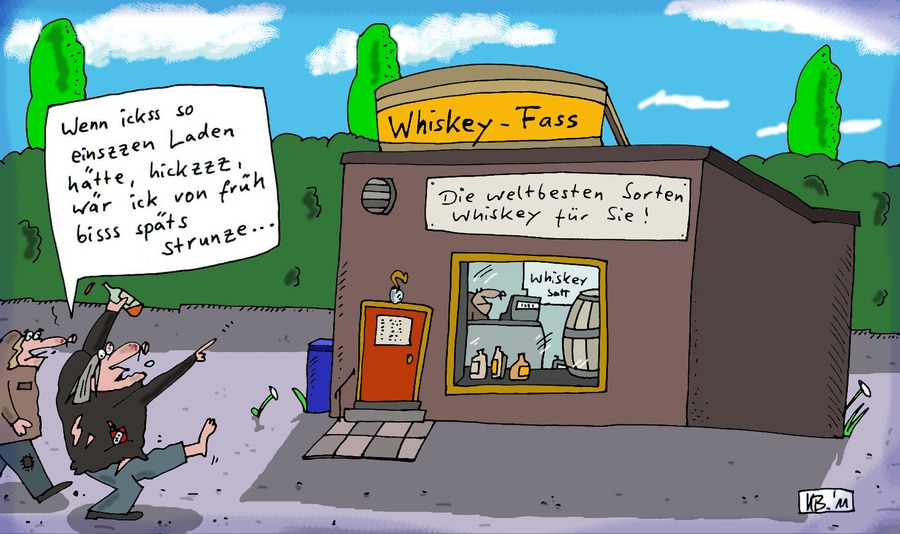 Wenn ickss so
einszzen Laden
hätte, hickzzz,
wär ick von früh
bisss späts
strunze...
Whiskey-Fass
Die weltbesten Sorten
Whiskey für Sie!
Whiskey
satt
KB.'11